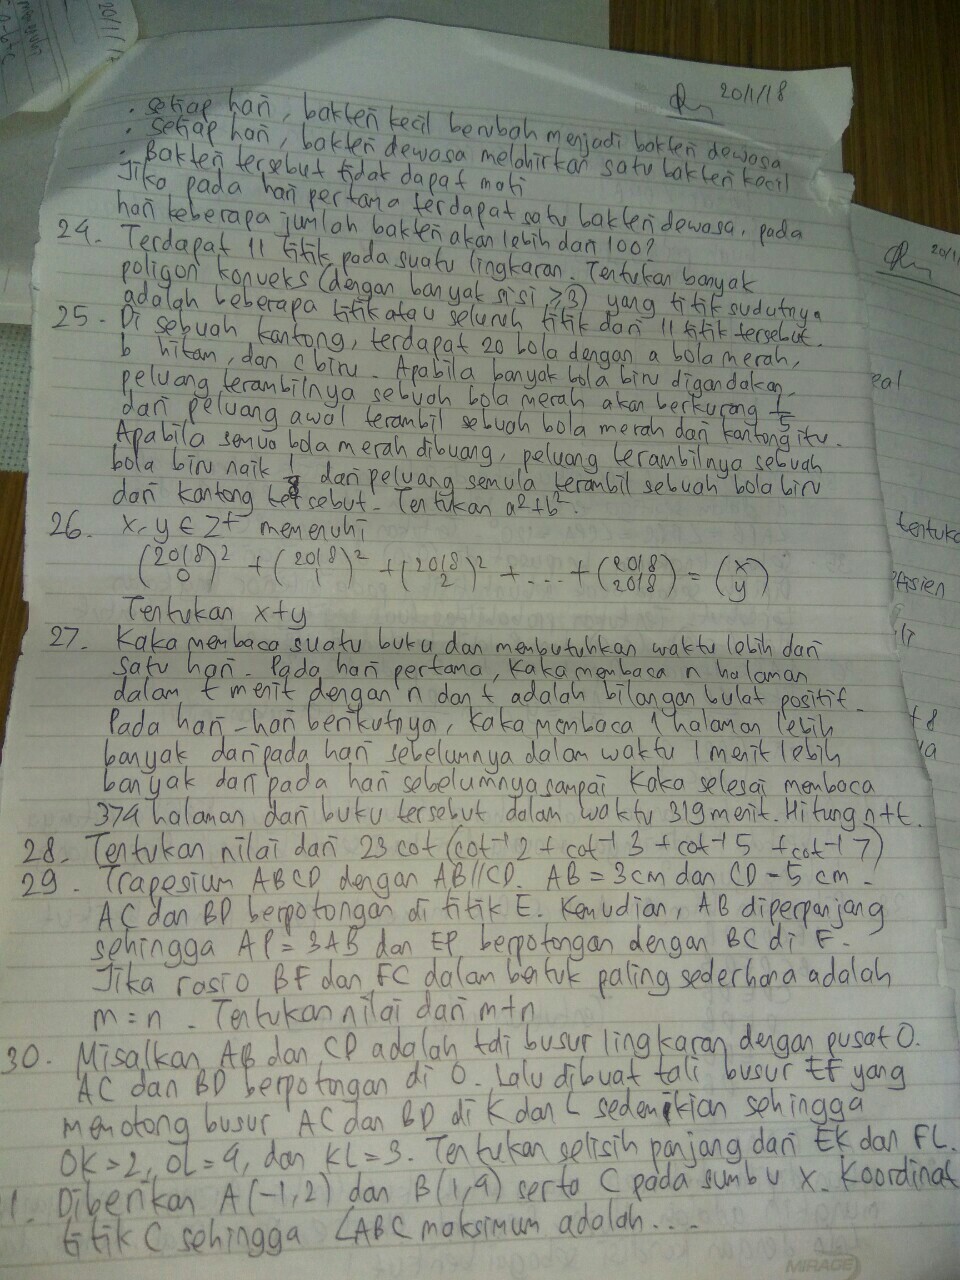 20/1/18
. setiap hari, bakteri kecil berubah menjadi bakteri dewasa
. setiap hari, bakteri dewasa melahirkan satu bakteri kecil
. Bakteri tersebut tidak dapat mati
Jika pada hari pertama terdapat satu bakteri dewasa, pada
hari keberapa jumlah bakteri akan lebih dari 100?
24. Terdapat 11 titik pada suatu lingkaran. Tentukan banyak
poligon konveks (dengan banyak sisi ≥ 3) yang titik sudutnya
adalah beberapa titik atau seluruh titik dari 11 titik tersebut.
25. Di sebuah kantong, terdapat 20 bola dengan a bola merah,
b hitam, dan c biru. Apabila banyak bola biru digandakan,
peluang terambilnya sebuah bola merah akan berkurang 1/5
dari peluang awal terambil sebuah bola merah dari kantong itu.
Apabila semua bola merah dibuang, peluang terambilnya sebuah
bola biru naik dari peluang semula terambil sebuah bola biru
dari kantong tersebut. Tentukan a²+b².
26. x, y ∈ Z+ memenuhi
(2018 0)² + (2018 1)² + (2018 2)² + ... + (2018 2018) = (x y)
Tentukan x+y
27. Kaka membaca suatu buku dan membutuhkan waktu lebih dari
satu hari. Pada hari pertama, Kaka membaca n halaman
dalam t menit dengan n dan t adalah bilangan bulat positif.
Pada hari-hari berikutnya, Kaka membaca 1 halaman lebih
banyak daripada hari sebelumnya dalam waktu 1 menit lebih
banyak daripada hari sebelumnya sampai Kaka selesai membaca
374 halaman dari buku tersebut dalam waktu 319 menit. Hitung n+t.
28. Tentukan nilai dari 23 cot (cot⁻¹ 2 + cot⁻¹ 3 + cot⁻¹ 5 + cot⁻¹ 7)
29. Trapesium ABCD dengan AB//CD. AB = 3 cm dan CD = 5 cm.
AC dan BD berpotongan di titik E. Kemudian, AB diperpanjang
sehingga AP = 3AB dan EP berpotongan dengan BC di F.
Jika rasio BF dan FC dalam bentuk paling sederhana adalah
m = n. Tentukan nilai dari m+n
30. Misalkan AB dan CD adalah tali busur lingkaran dengan pusat O.
AC dan BD berpotongan di O. Lalu dibuat tali busur EF yang
memotong busur AC dan BD di K dan L sedemikian sehingga
OK = 2, OL = 4, dan KL = 3. Tentukan selisih panjang dari EK dan FL.
1. Diberikan A(-1,2) dan B(1,4) serta C pada sumbu x. Koordinat
titik C sehingga ∠ABC maksimum adalah....
MIRAGE
20/1/1
eal
tentuka
fisien
+8
ya